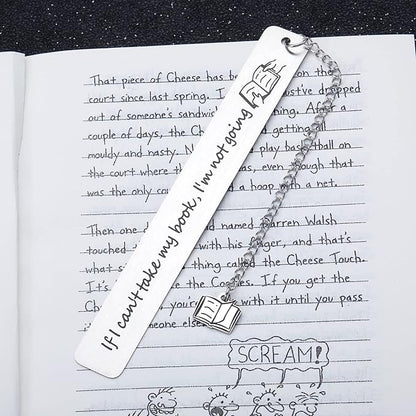 That piece of Cheese has on the
court since last spring. I dropped
out of someone's After a
couple of days, the getting all
mouldy and nasty. play basketball on
the court where even though that
was the only a hoop with a net.
Then one named Darren Walsh
touched with his finger, and that's
what thing called the Cheese Touch.
It's the If you get the
you're with it until you pass
else.
If I can't take my book, I'm not going!
SCREAM!